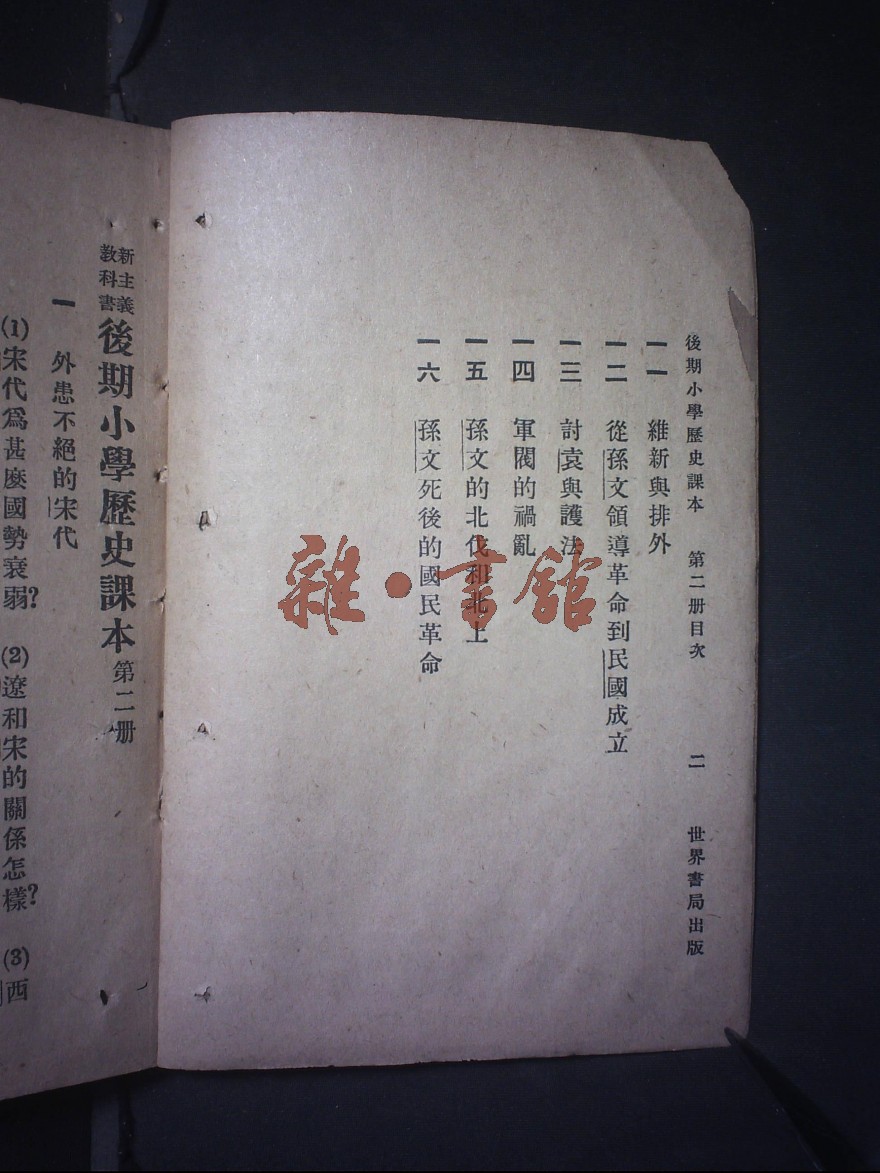 後期小學歷史課本 第二册目次 二 世界書局出版
一一 維新與排外
一二 從孫文領導革命到民國成立
一三 討袁與護法
一四 軍閥的禍亂
一五 孫文的北伐和北上
一六 孫文死後的國民革命
雜·書館
新主義教科書 後期小學歷史課本 第二册
一 外患不絕的宋代
(1)宋代爲甚麼國勢衰弱? (2)遼和宋的關係怎樣? (3)西